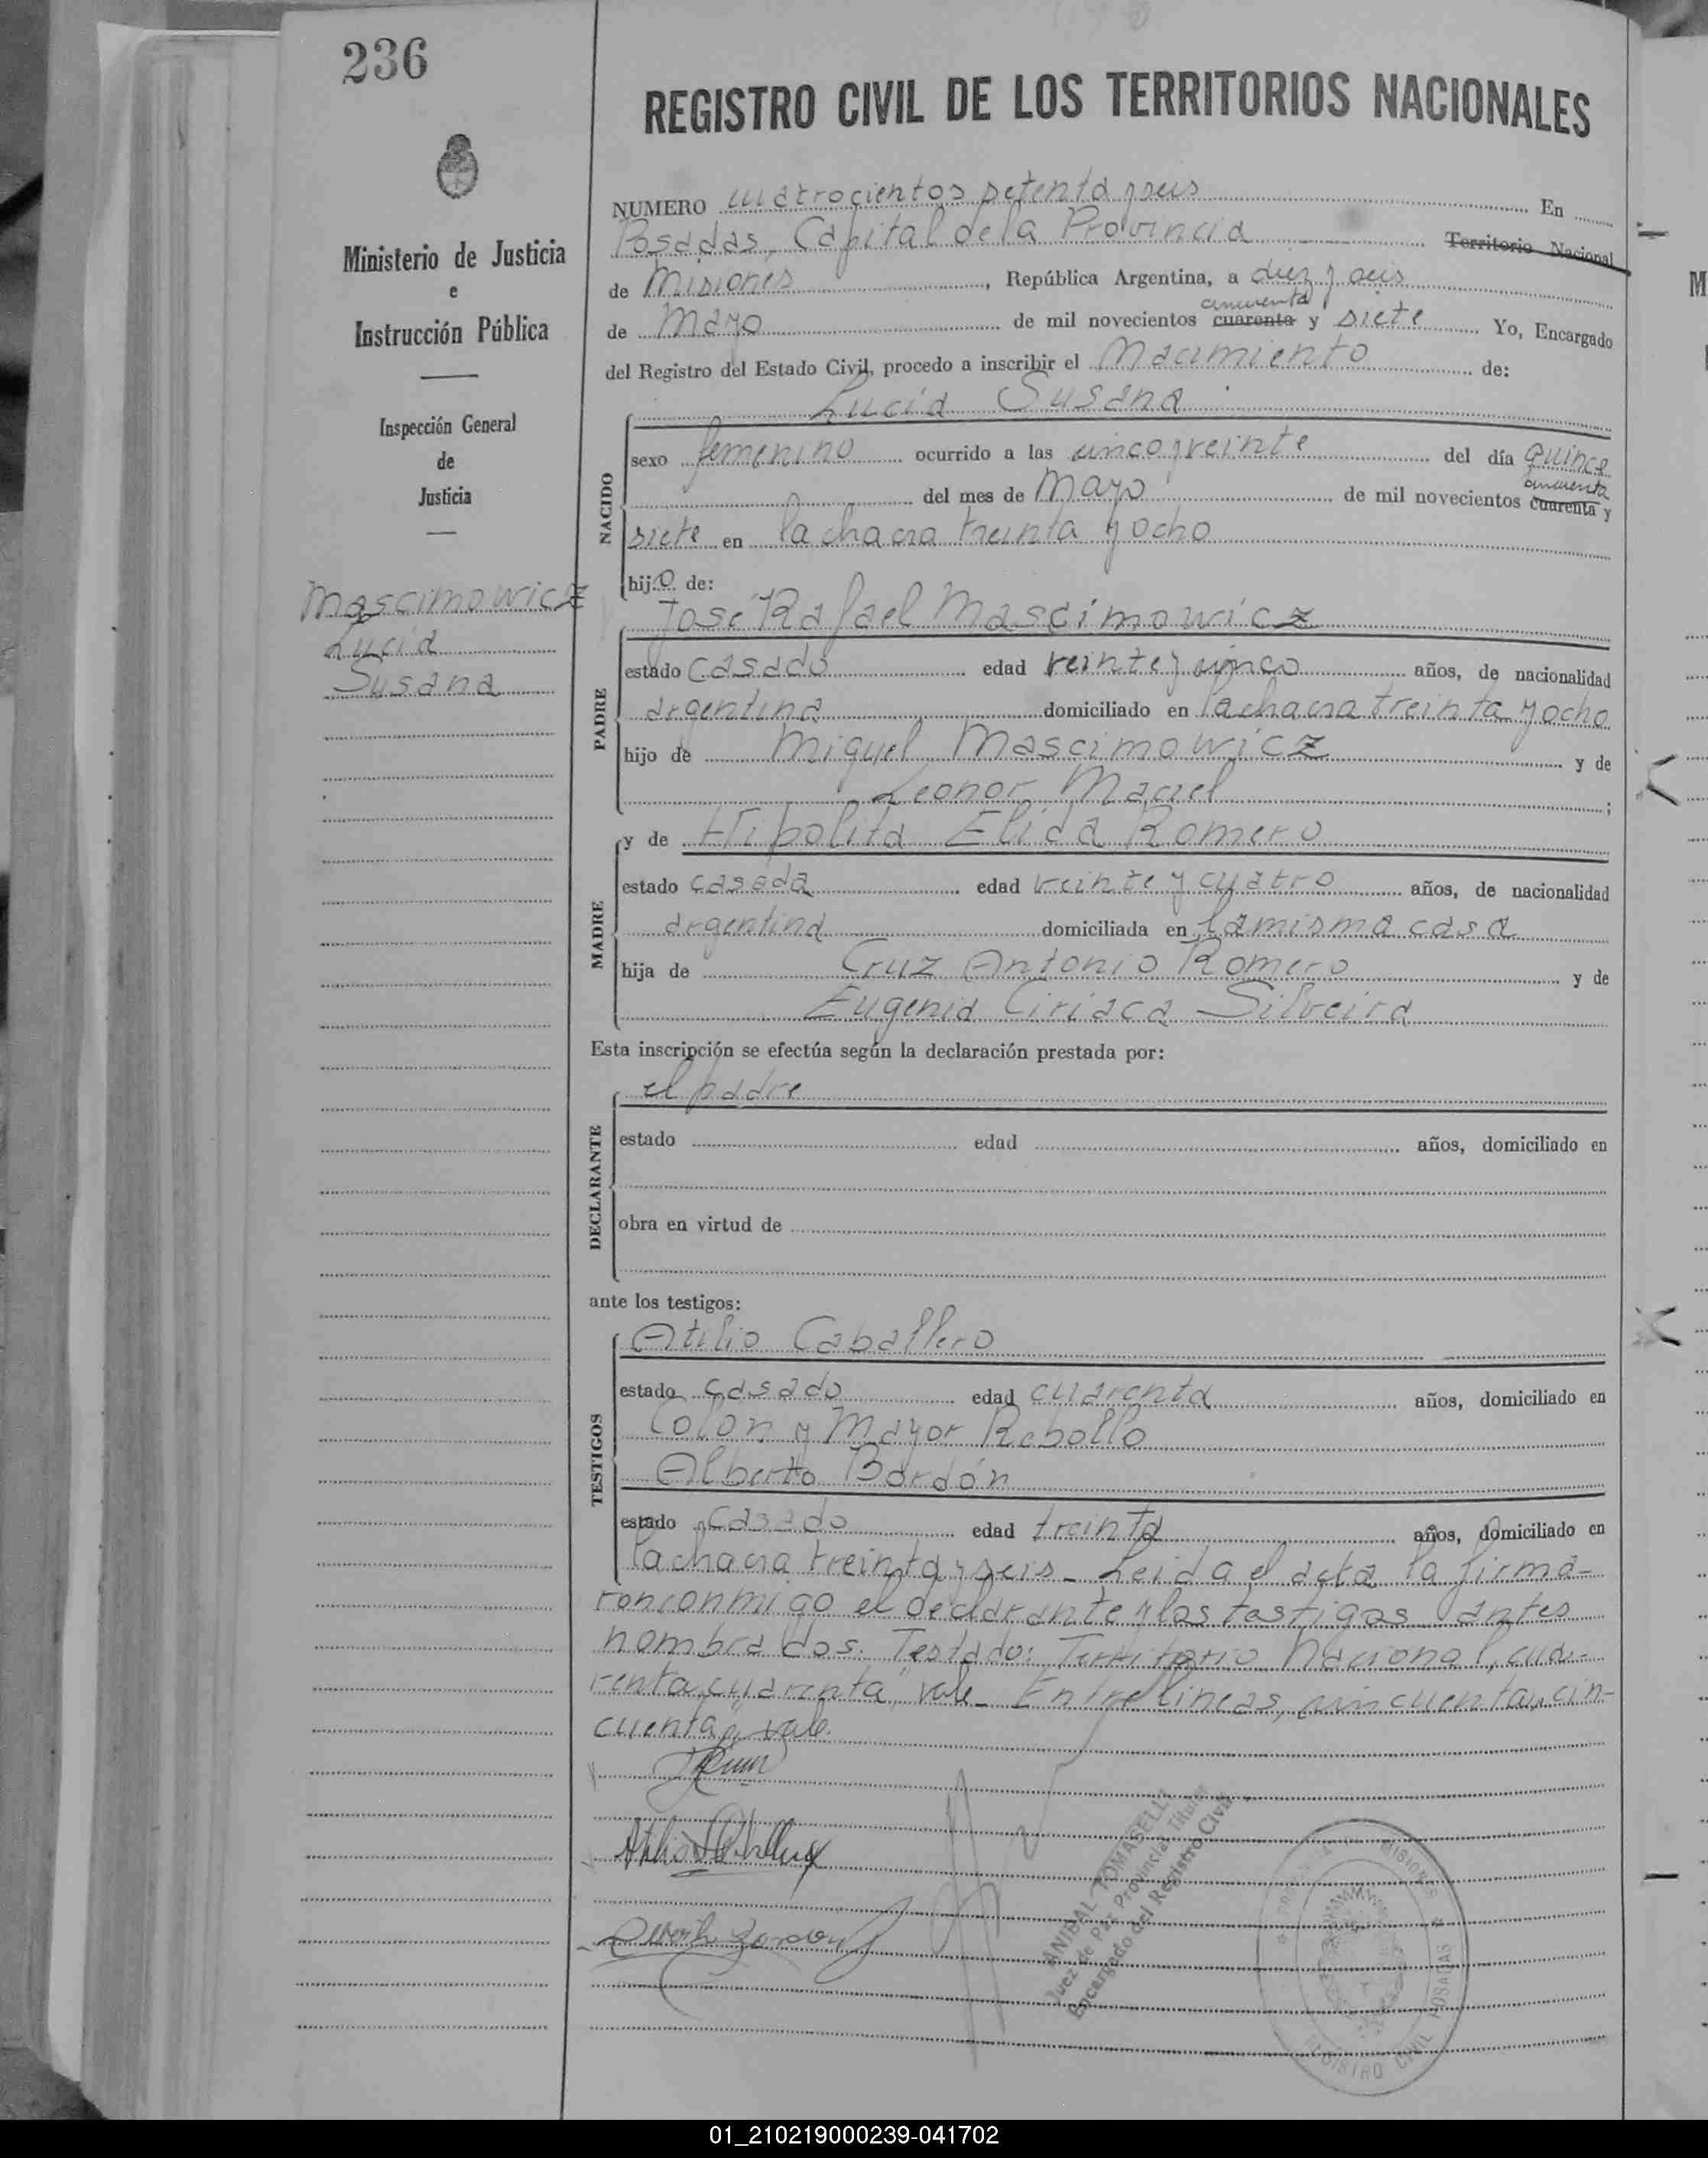 236
REGISTRO CIVIL DE LOS TERRITORIOS NACIONALES
Ministerio de Justicia
e
Instrucción Pública
Inspección General
de
Justicia
Mascimowicz
Lucía
Susana
NUMERO cuatrocientos setenta y seis En
Posadas, Capital de la Provincia Territorio Nacional
de Misiones, República Argentina, a diez y seis
cincuenta
de Mayo de mil novecientos cuarenta y siete Yo, Encargado
del Registro del Estado Civil, procedo a inscribir el Nacimiento de:
Lucía Susana
NACIDO
sexo femenino ocurrido a las cinco y veinte del día Quince
cincuenta
del mes de Mayo de mil novecientos cuarenta y
siete en la chacra treinta y ocho
hijo de:
José Rafael Mascimowicz
PADRE
estado casado edad veinte y cinco años, de nacionalidad
argentina domiciliado en la chacra treinta y ocho
hijo de Miguel Mascimowicz y de
Leonor Maciel ;
y de Hipolita Elida Romero
MADRE
estado casada edad veinte y cuatro años, de nacionalidad
argentina domiciliada en la misma casa
hija de Cruz Antonio Romero y de
Eugenia Ciriaca Silveira
Esta inscripción se efectúa según la declaración prestada por:
el padre
DECLARANTE
estado edad años, domiciliado en
obra en virtud de
ante los testigos:
Atilio Caballero
TESTIGOS
estado casado edad cuarenta años, domiciliado en
Colon y Mayor Rebollo
Alberto Bordón
estado casado edad treinta años, domiciliado en
la chacra treinta y seis_ Leida el acta la firma-
ron conmigo el declarante y los testigos antes
nombrados. Testado: Territorio Nacional, cua-
renta, cuarenta, vale_ Entre lineas, cincuenta, cin-
cuenta, vale.
ANIBAL TOMASELLI
Juez de Paz Provincial Titular
Encargado del Registro Civil
MISIONES
REGISTRO CIVIL POSADAS
01_210219000239-041702